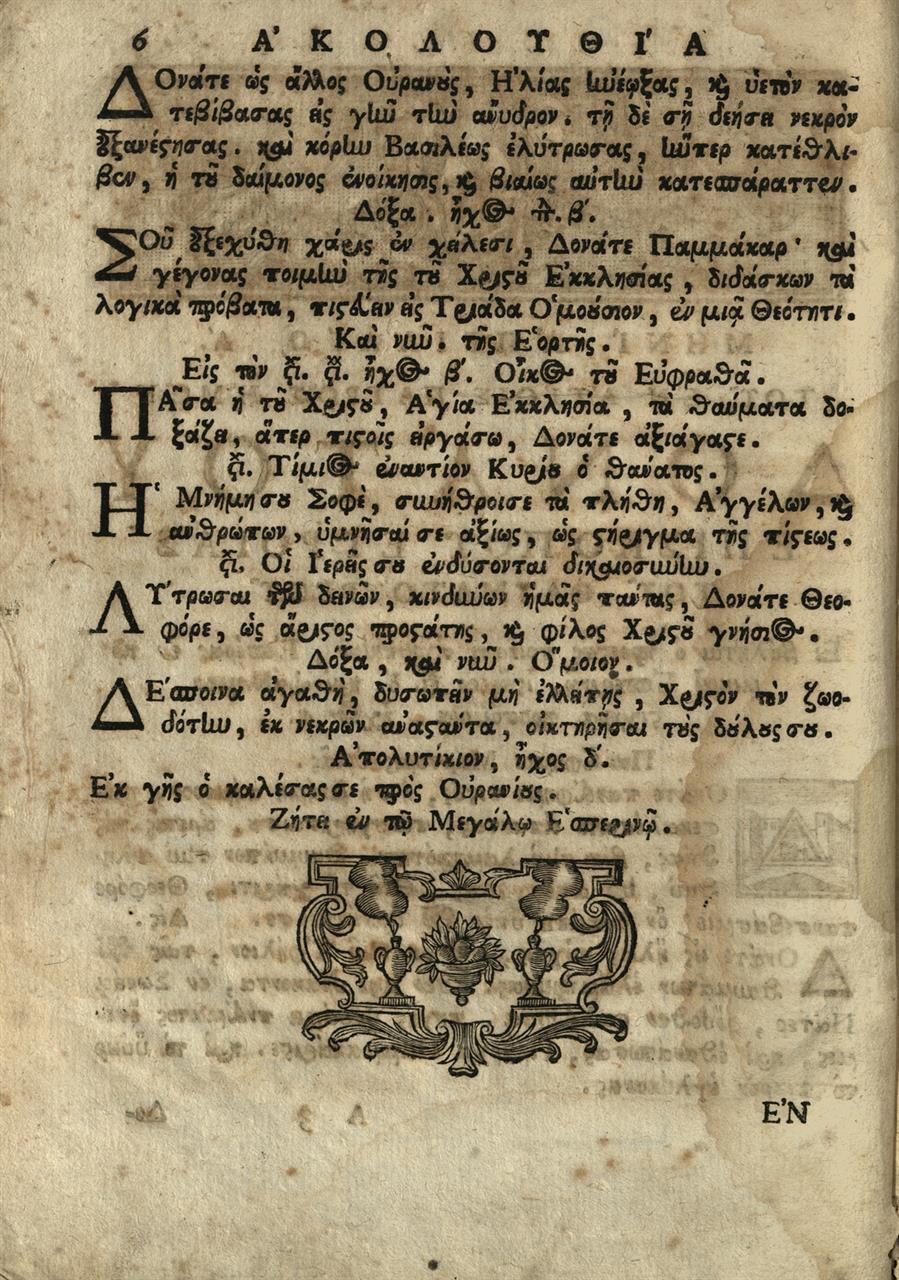 6 Ἀ Κ Ο Λ Ο Υ Θ Ί Α
ΔΟνάτε ὡς ἄλλος Οὐρανοὺς, Ἠλίας ἠνέῳξας, καὶ ὑετὸν κα-
τεβίβασας εἰς γῆν τὴν ἄνυδρον. τῇ δὲ σῇ δεήσει νεκρὸν
ἐξανέστησας. καὶ κόρην Βασιλέως ἐλύτρωσας, ἥνπερ κατέθλι-
βεν, ἡ τοῦ δαίμονος ἐνοίκησις, καὶ βιαίως αὐτὴν κατεσπάραττεν.
Δόξα. ἦχος πλ. β'.
ΣΟῦ ἐξεχύθη χάρις ἐν χείλεσι, Δονάτε Παμμάκαρ· καὶ
γέγονας ποιμὴν τῆς τοῦ Χριστοῦ Ἐκκλησίας, διδάσκων τὰ
λογικὰ πρόβατα, πιστεύειν εἰς Τριάδα Ὁμούσιον, ἐν μιᾷ Θεότητι.
Καὶ νῦν. τῆς Ἑορτῆς.
Εἰς τὸν στι. στι. ἦχος β'. Οἶκος τοῦ Εὐφραθᾶ.
ΠΑ͂σα ἡ τοῦ Χριστοῦ, Ἁγία Ἐκκλησία, τὰ θαύματα δο-
ξάζει, ἅπερ πιστοῖς εἰργάσω, Δονάτε ἀξιάγαστε.
στι. Τίμιος ἐναντίον Κυρίου ὁ θάνατος.
Ἡ Μνήμη σου Σοφὲ, συνήθροισε τὰ πλήθη, Ἀγγέλων, καὶ
ἀνθρώπων, ὑμνῆσαί σε ἀξίως, ὡς στήριγμα τῆς πίστεως.
στι. Οἱ Ἱερεῖς σου ἐνδύσονται δικαιοσύνην.
ΛΎτρωσαι τῶν δεινῶν, κινδύνων ἡμᾶς πάντας, Δονάτε Θεο-
φόρε, ὡς ἄριστος προστάτης, καὶ φίλος Χριστοῦ γνήσιος.
Δόξα, καὶ νῦν. Ὅμοιον.
ΔΈσποινα ἀγαθὴ, δυσωπεῖν μὴ ἐλλείπῃς, Χριστὸν τὸν ζωο-
δότην, ἐκ νεκρῶν ἀναστάντα, οἰκτηρῆσαι τοὺς δούλους σου.
Ἀπολυτίκιον, ἦχος δ'.
Ἐκ γῆς ὁ καλέσας σε πρὸς Οὐρανίους.
Ζήτει ἐν τῷ Μεγάλῳ Ἑσπερινῷ.
ἘΝ